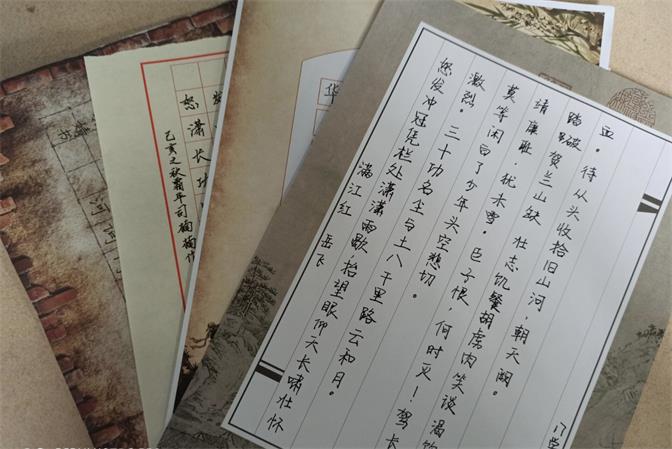 满江红 岳飞
怒发冲冠凭栏处潇潇雨歇,抬望眼仰天长啸壮怀
激烈。三十功名尘与土八千里路云和月。
莫等闲白了少年头空悲切。
靖康耻,犹未雪。臣子恨,何时灭!驾长
踏破贺兰山缺 壮志饥餐胡虏肉笑谈渴饮
血。待从头收拾旧山河,朝天阙。
华
怒潇长功